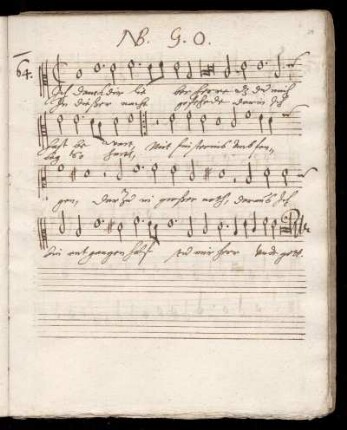 NB. G. O.
64.
Ich danck dir lie ber herre dz du mich
In dießer nacht darin Ich
hast be wart,
lag so hart, Mit finsternis umbfan,
gen, darzu in großer noth, daraus Ich
bin entgangen halff du mir herr undt gott.